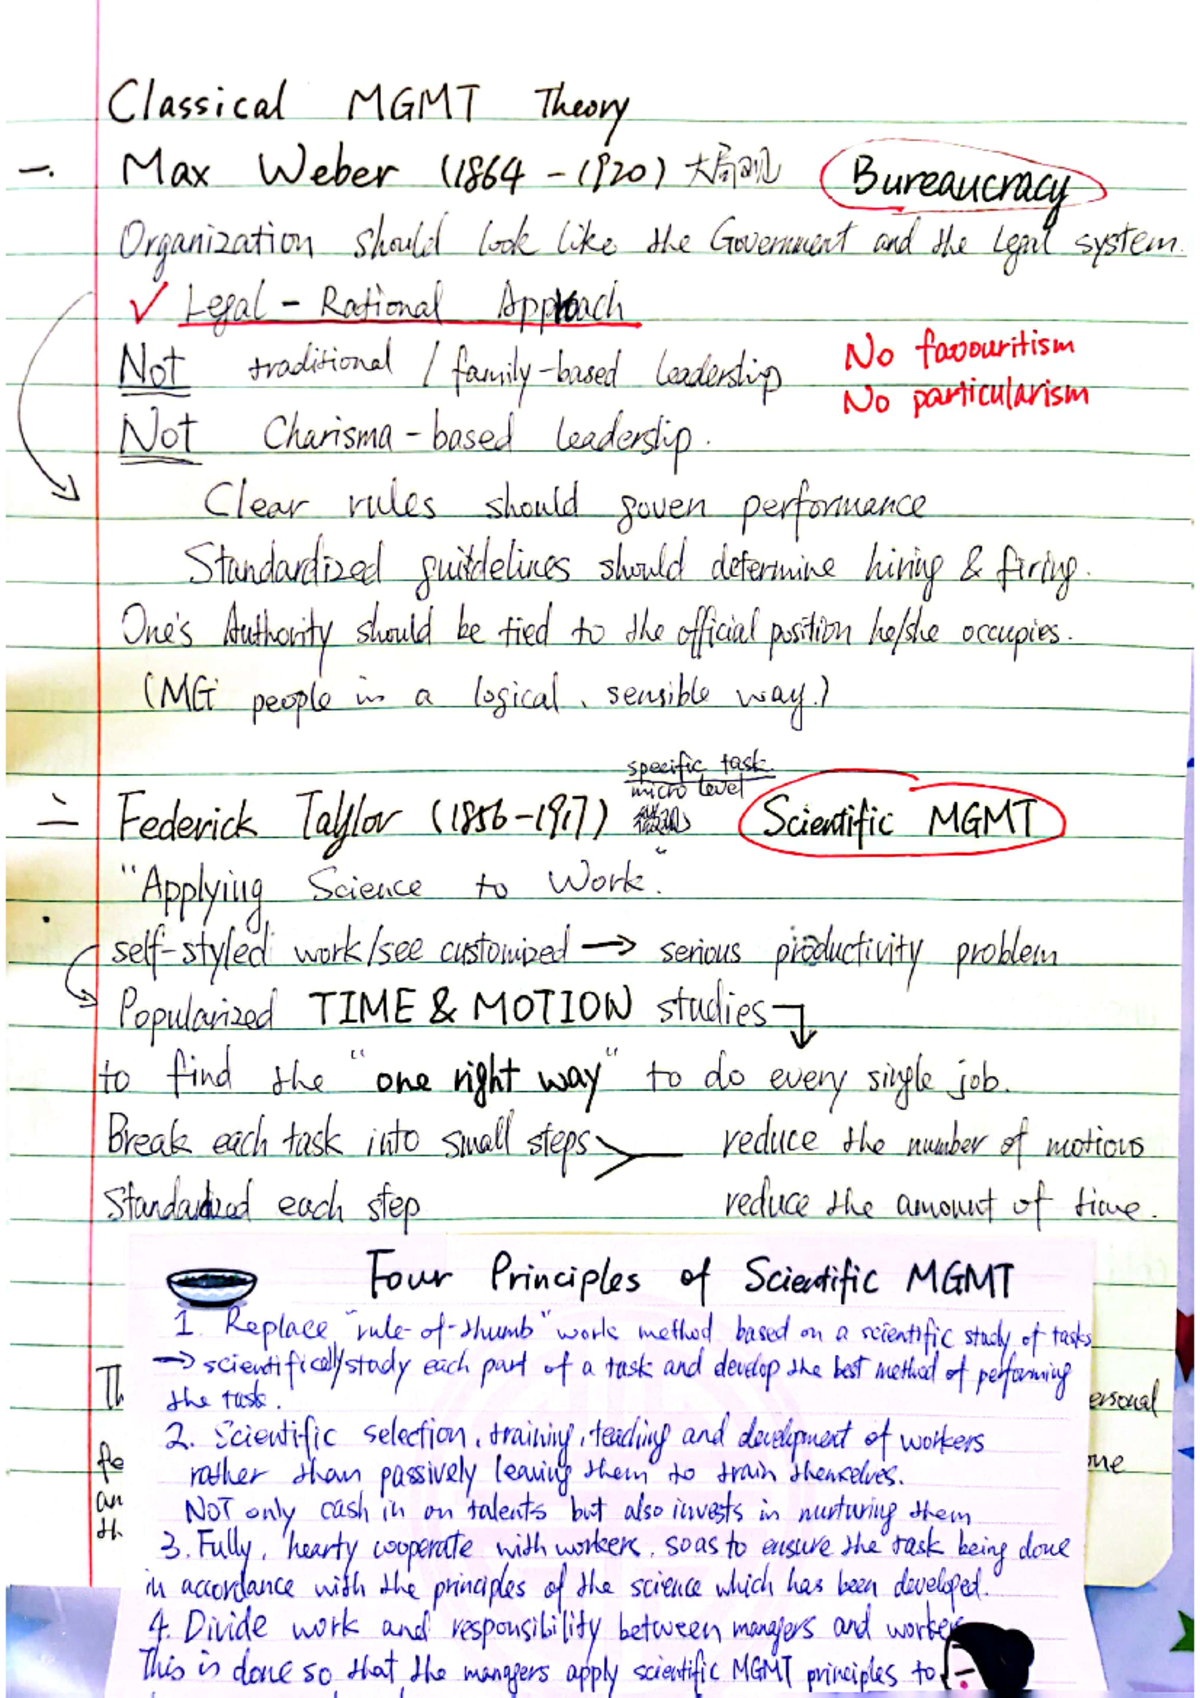 Classical MGMT Theory
一. Max Weber (1864-1920) 大局观 Bureaucracy
Organization should look like the Government and the Legal system.
✓ Legal-Rational Approach
Not traditional / family-based leadership
No favouritism
No particularism
Not Charisma-based leadership.
Clear rules should goven performance
Standardized guitdelines should determine hiring & firing.
One's Authority should be tied to the official position he/she occupies.
(MG people in a logical、sensible way.)
specific task
micro level
二 Federick Taylor (1856-1917) 微观 Scientific MGMT
"Applying Science to Work."
self-styled work/see customized → serious productivity problem
Popularized TIME & MOTION studies
to find the "one right way" to do every single job.
Break each task into small steps reduce the number of motions
Standardized each step reduce the amount of time.
Four Principles of Scientific MGMT
1. Replace "rule-of-thumb" work method based on a scientific study of tasks
→ scientifically study each part of a task and develop the best method of performing
the task.
Th ersonal
2. Scientific selection, training, teaching and development of workers
fe one
rather than passively leaving them to train themselves.
an
NOT only cash in on talents but also invests in nurturing them
th
3. Fully, hearty cooperate with workers. so as to ensure the task being done
in accordance with the principles of the science which has been developed.
4. Divide work and responsibility between managers and worke
This is done so that the managers apply scientific MGMT principles to